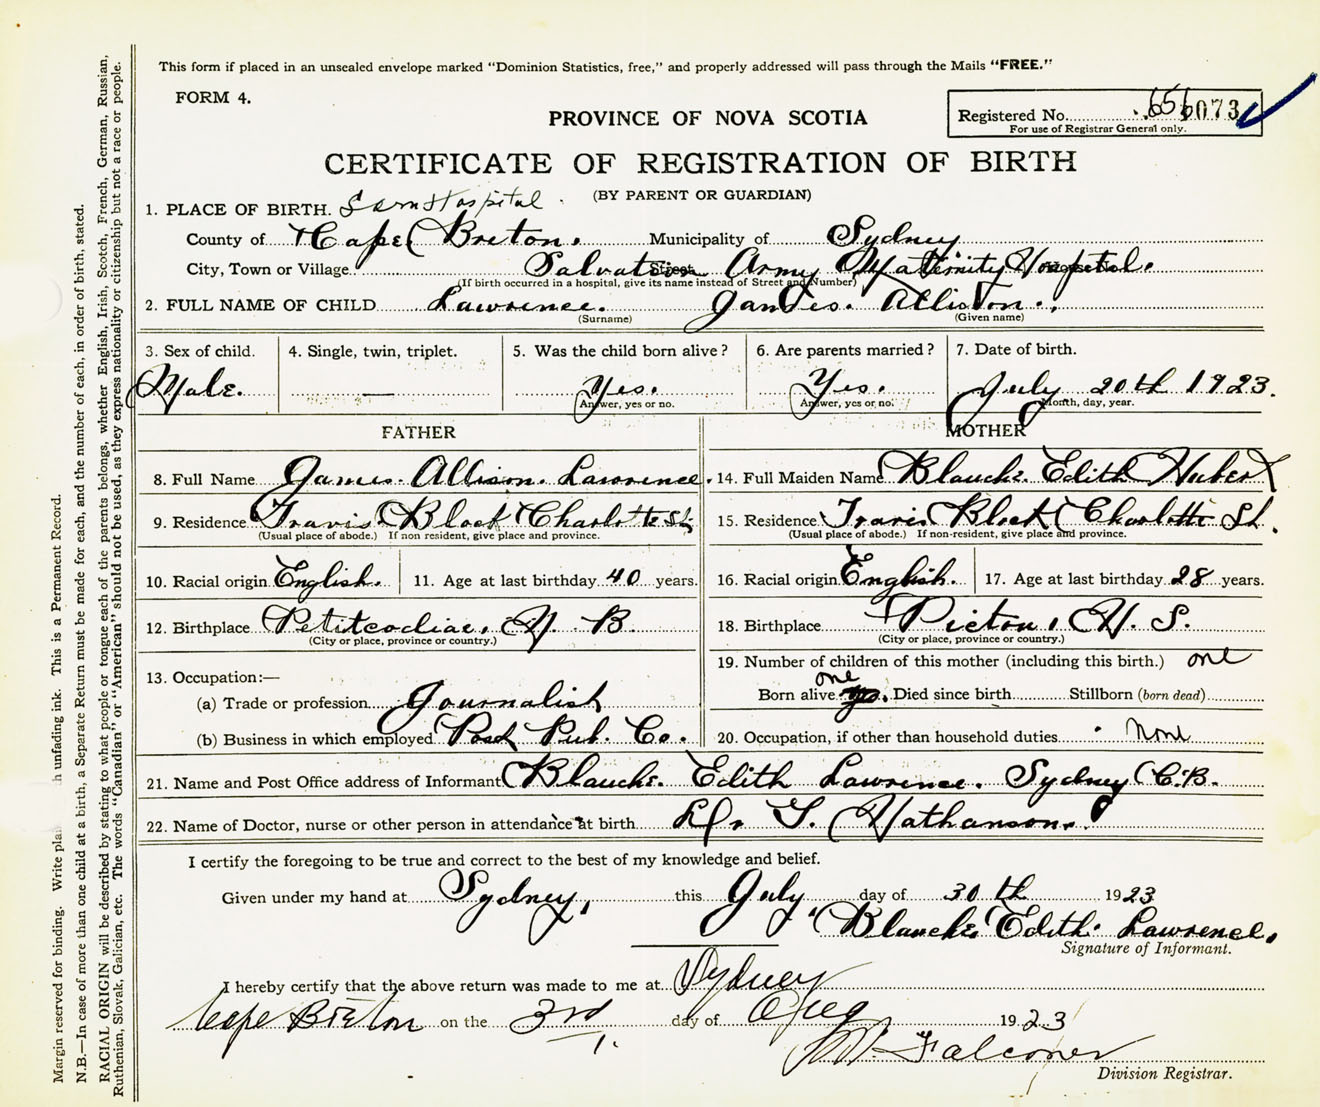 This form if placed in an unsealed envelope marked "Dominion Statistics, free," and properly addressed will pass through the Mails "FREE."
FORM 4.
PROVINCE OF NOVA SCOTIA
Registered No. 656 073
For use of Registrar General only.
CERTIFICATE OF REGISTRATION OF BIRTH
(BY PARENT OR GUARDIAN)
1. PLACE OF BIRTH. Hospital
County of Cape Breton. Municipality of Sydney
City, Town or Village Salvation Army Maternity Hospital.
(If birth occurred in a hospital, give its name instead of Street and Number)
2. FULL NAME OF CHILD Lawrence. James. Allison.
(Surname) (Given name)
3. Sex of child. 4. Single, twin, triplet. 5. Was the child born alive? 6. Are parents married? 7. Date of birth.
Male. — Yes. Yes. July 20th 1923.
Answer, yes or no. Answer, yes or no. Month, day, year.
FATHER MOTHER
8. Full Name James. Allison. Lawrence. 14. Full Maiden Name Blanche. Edith Hubert
9. Residence Travis Block Charlotte St. 15. Residence Travis Block Charlotte St.
(Usual place of abode.) If non resident, give place and province. (Usual place of abode.) If non-resident, give place and province.
10. Racial origin English. 11. Age at last birthday 40 years. 16. Racial origin English. 17. Age at last birthday 28 years.
12. Birthplace Petitcodiac, N. B. 18. Birthplace Pictou, N. S.
(City or place, province or country.) (City or place, province or country.)
13. Occupation:— 19. Number of children of this mother (including this birth.) one
(a) Trade or profession Journalist Born alive one Died since birth Stillborn (born dead)
(b) Business in which employed Post Pub. Co. 20. Occupation, if other than household duties None
21. Name and Post Office address of Informant Blanche. Edith Lawrence. Sydney C.B.
22. Name of Doctor, nurse or other person in attendance at birth Dr Nathanson.
I certify the foregoing to be true and correct to the best of my knowledge and belief.
Given under my hand at Sydney, this July day of 30th 1923
Blanche Edith Lawrence.
Signature of Informant.
I hereby certify that the above return was made to me at Sydney
Cape Breton on the 3rd day of Aug 1923
Falconer
Division Registrar.
Margin reserved for binding. Write unfading ink. This is a Permanent Record.
N.B.—In case of more than one child at a birth, a Separate Return must be made for each, and the number of each, in order of birth, stated.
RACIAL ORIGIN will be described by stating to what people or tongue each of the parents belongs, whether English, Irish, Scotch, French, German, Russian,
Ruthenian, Slovak, Galician, etc. The words "Canadian" or "American" should not be used, as they express nationality or citizenship but not a race or people.